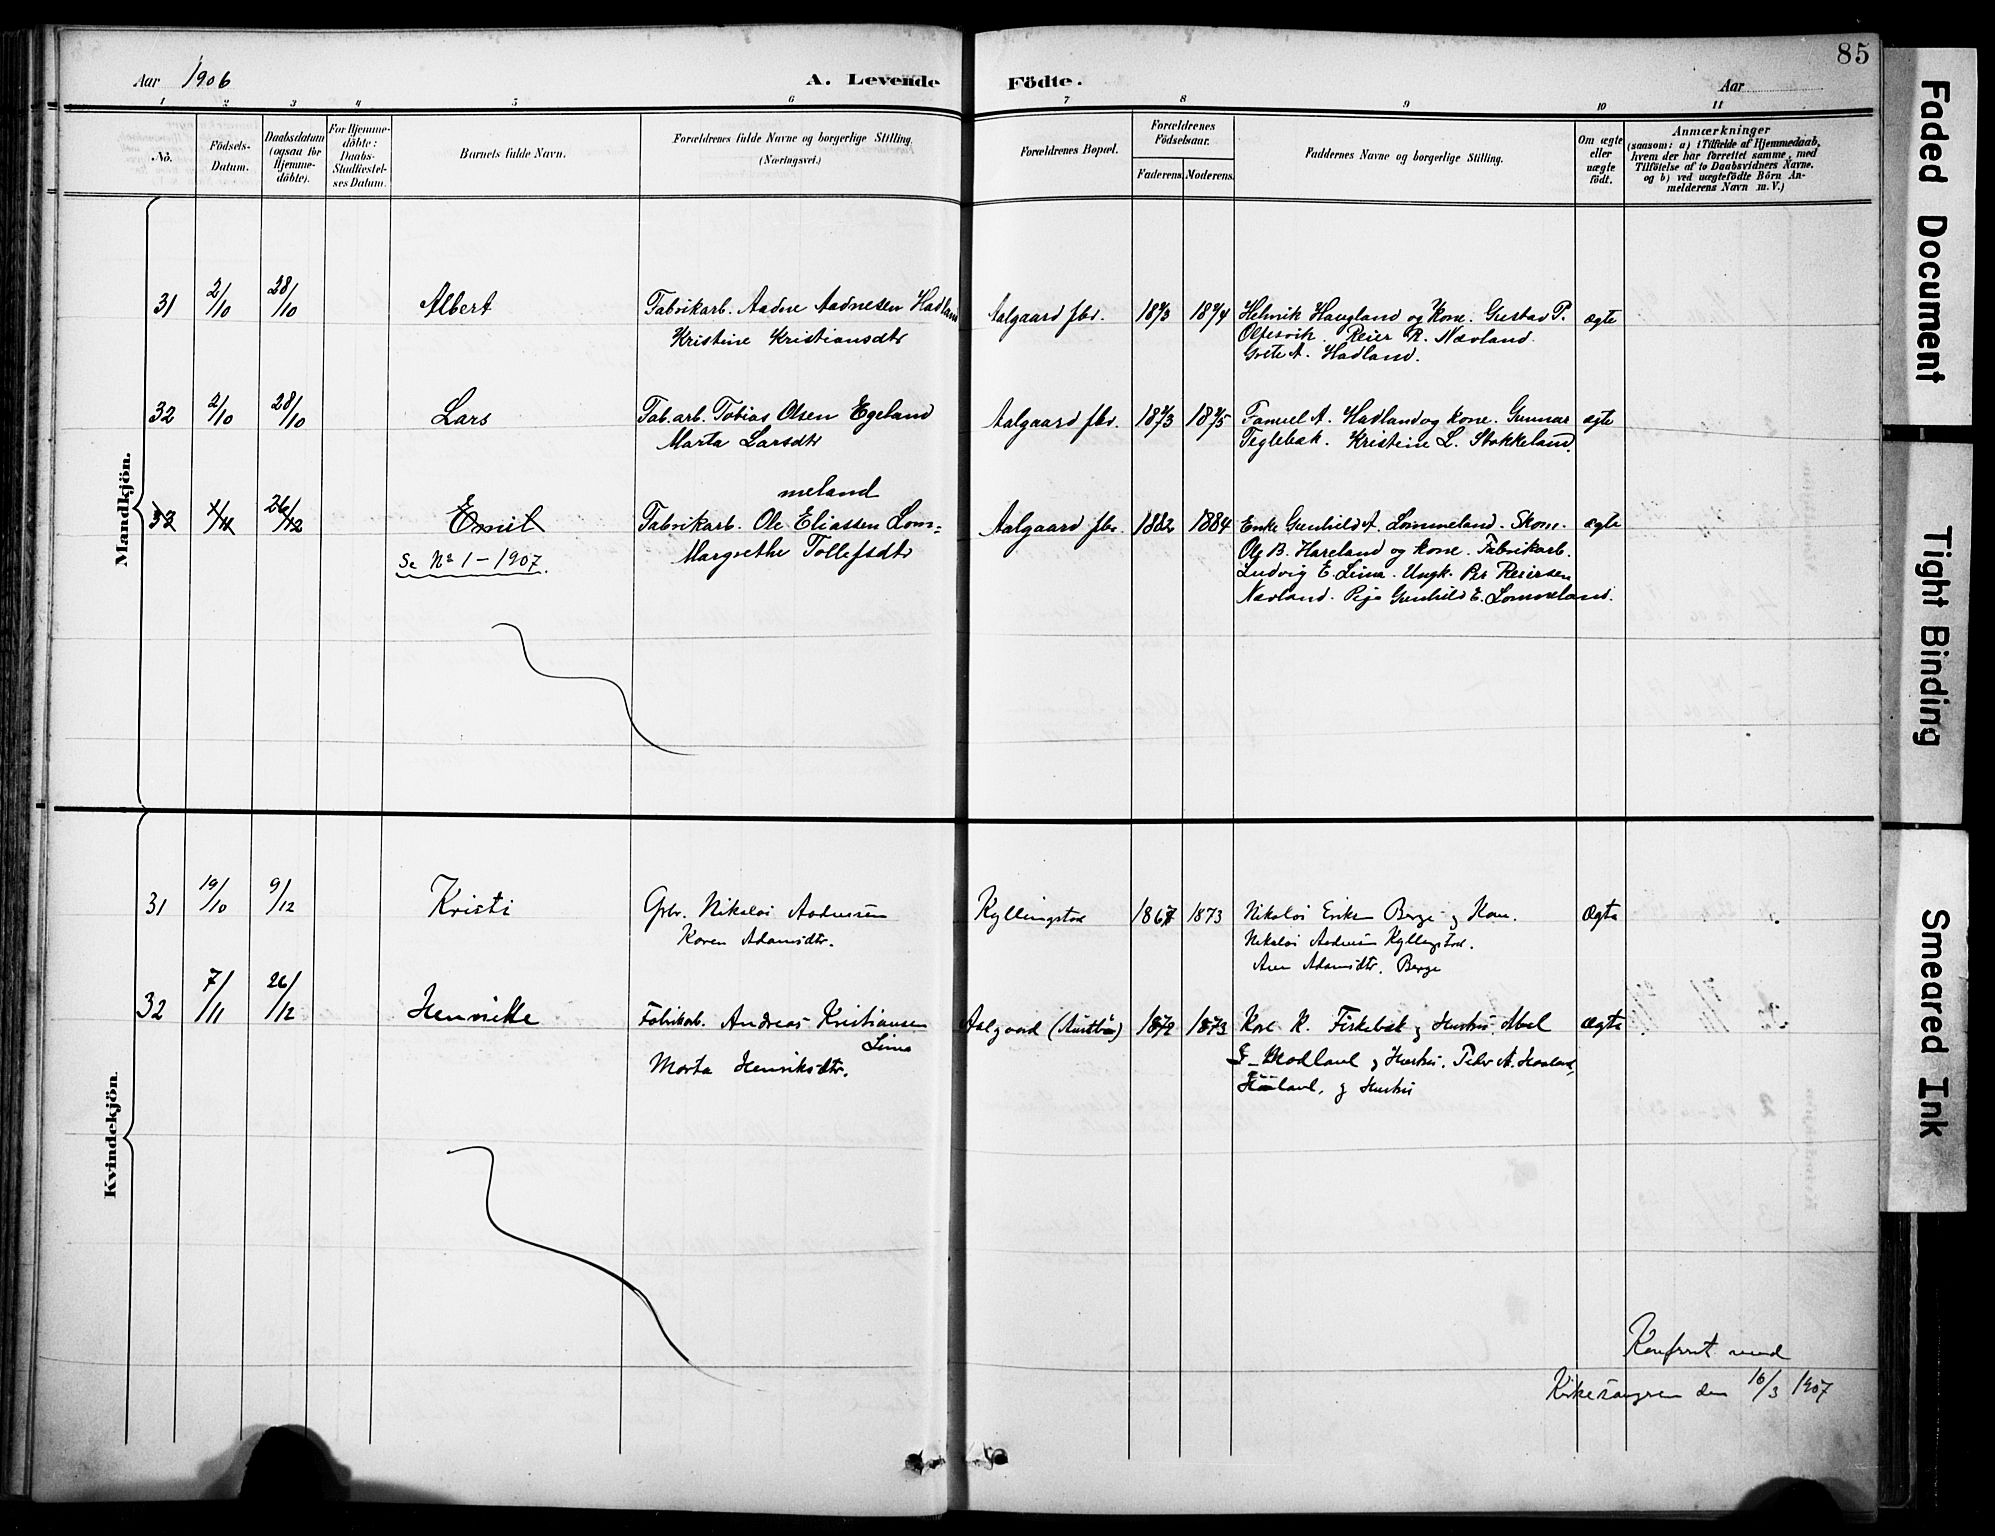 85
Aar 1906
A. Levende Födte.
Aar
1 2 3 4 5 6 7 8 9 10 11
No.
Födsels-Datum.
Daabsdatum (ogsaa för Hjemme-döbte).
For Hjemme-döbte: Daabs-Stadfæstel-ses Datum.
Barnets fulde Navn.
Forældrenes fulde Navne og borgerlige Stilling. (Næringsvei.)
Forældrenes Bopæl.
Forældrenes Födselsaar.
Faderens. Moderens.
Faddernes Navne og borgerlige Stilling.
Om ægte eller uægte födt.
Anmærkninger
(saasom: a) i Tilfælde af Hjemmedaab,
hvem der har forrettet samme, med
Tilföielse af to Daabsvidners Navne,
og b) ved uægtefödte Börn An-
melderens Navn m. V.)
Mandkjön.
31 2/10 28/10 Albert Fabrikarb. Aadne Aadnesen Hadland Aalgaard fbr. 1873 1874 Helmik Haugland og Kone. Gustav P. ægte
Kristine Kristiansdtr Reier R. Nævland.
Grete A. Hadland.
32 2/10 28/10 Lars Fab.arb. Tobias Olsen Egeland Aalgaard fbr. 1873 1875 Samuel A. Hadland og Kone. Gunnar ægte
Marta Larsdtr Teglebak. Kristine L. Stokkeland.
meland
33 1/11 26/12 Emil Fabrikarb. Ole Eliassen Lom= Aalgaard fbr. 1882 1884 Enke Gunhild A. Lommeland. Skom. ægte
Se No 1 - 1907. Margrethe Tollefsdtr Ole B. Hareland og Kone. Fabrikarb.
Ludvig E. Lima. Ungk. Per Reiersen
Nævland. Pige Gunhild E. Lommeland.
Kvindekjön.
31 19/10 9/12 Kristi Gbr. Nikolai Aadnesen Kyllingstad 1867 1873 Nikolai Eriksen Berge og Kone. Ægte
Karen Adamsdtr. Nikolai Aadnesen Kyllingstad.
Adamsdtr. Berge
32 7/11 26/12 Henrikke Fabrikarb. Andreas Kristiansen Aalgaard 1872 1873 Karl K. Fiskebæk og Hustru. Abel Ægte
Lima
Marta Henriksdtr. Madland og Hustru. Peder A. Haaland,
Haaland, og Hustru
Konfereret med
Kirkesangeren den 16/3 1907
Faded Document
Tight Binding
Smeared Ink